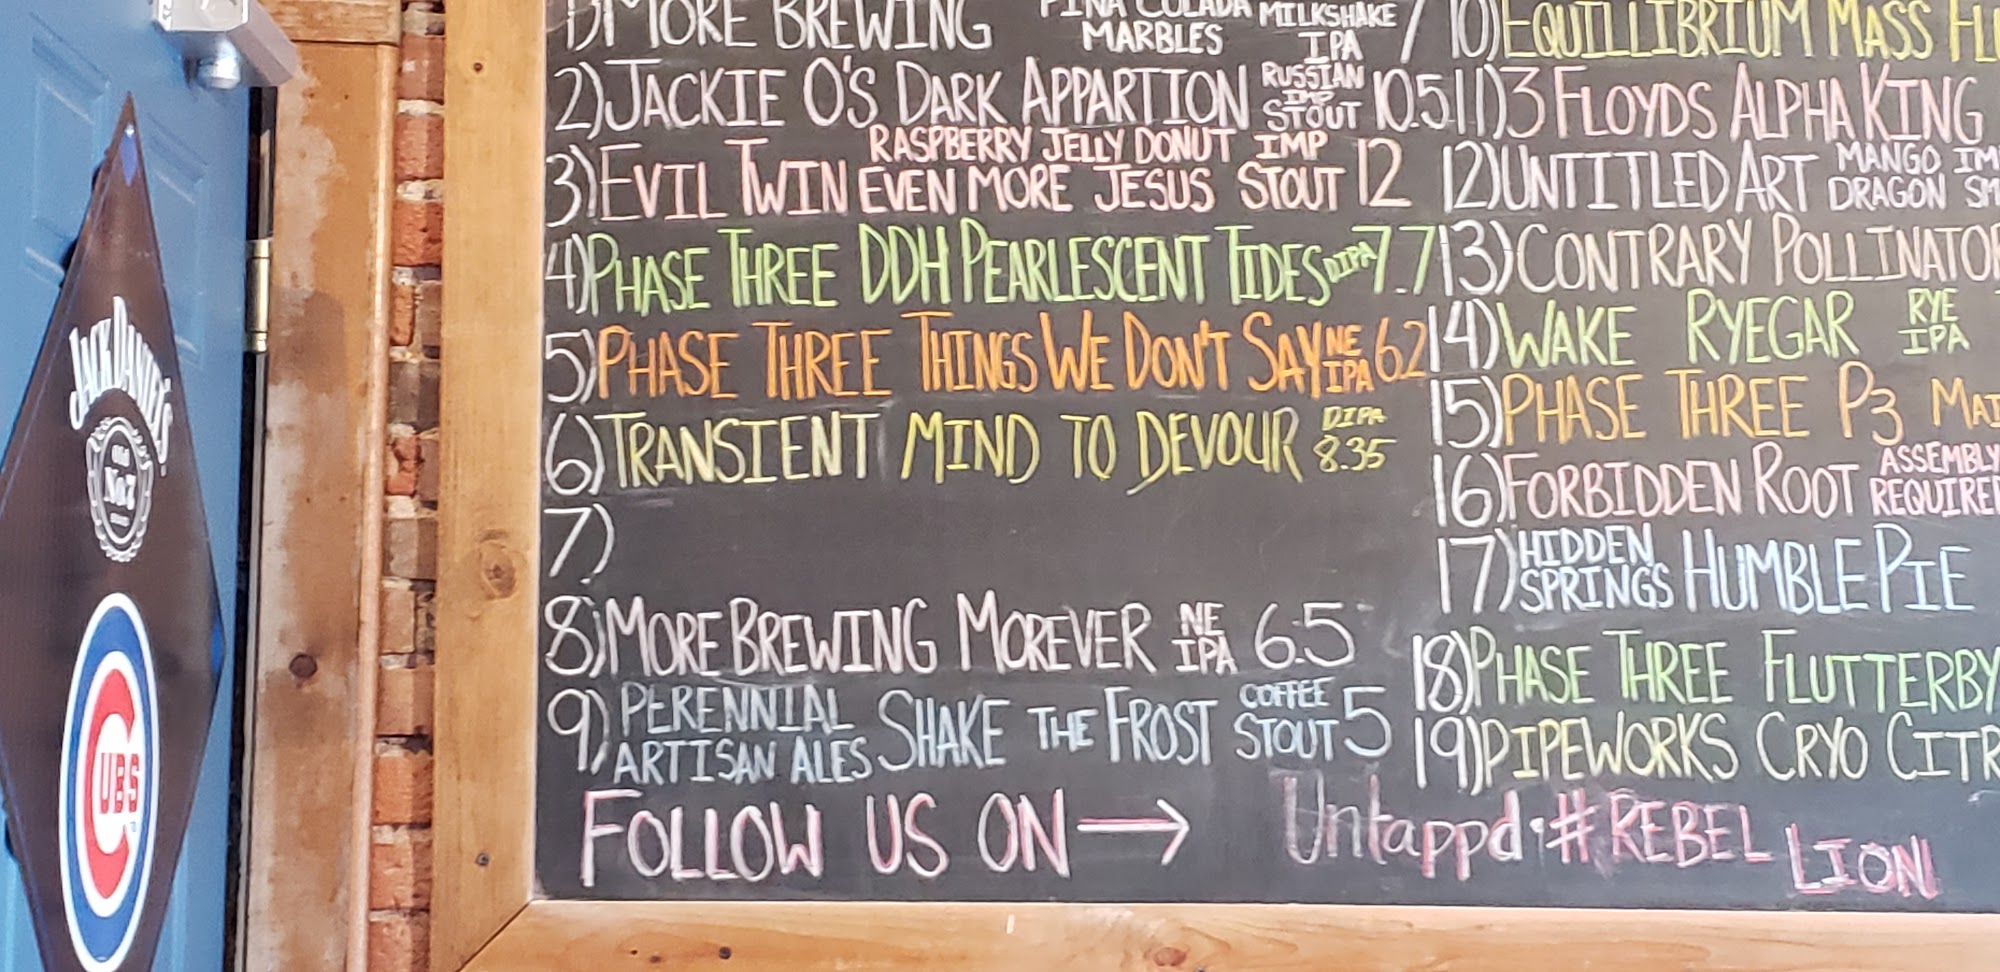 JACK DANIEL'S
Old
No.7
CUBS
1) MORE BREWING PINA COLADA MARBLES MILKSHAKE IPA 7
2) JACKIE O'S DARK APPARTION RUSSIAN IMP STOUT 10.5
3) EVIL TWIN RASPBERRY JELLY DONUT EVEN MORE JESUS IMP STOUT 12
4) PHASE THREE DDH PEARLESCENT TIDES DIPA 7.7
5) PHASE THREE THINGS WE DON'T SAY NE IPA 6.2
6) TRANSIENT MIND TO DEVOUR DIPA 8.35
7)
8) MORE BREWING MOREVER NE IPA 6.5
9) PERENNIAL ARTISAN ALES SHAKE THE FROST COFFEE STOUT 5
10) EQUILLIBRIUM MASS FL
11) 3 FLOYDS ALPHA KING
12) UNTITLED ART MANGO DRAGON IM SM
13) CONTRARY POLLINATOR
14) WAKE RYEGAR RYE IPA
15) PHASE THREE P3 MAI
16) FORBIDDEN ROOT ASSEMBLY REQUIRED
17) HIDDEN SPRINGS HUMBLE PIE
18) PHASE THREE FLUTTERBY
19) PIPEWORKS CRYO CITR
FOLLOW US ON → Untappd · #REBEL LION